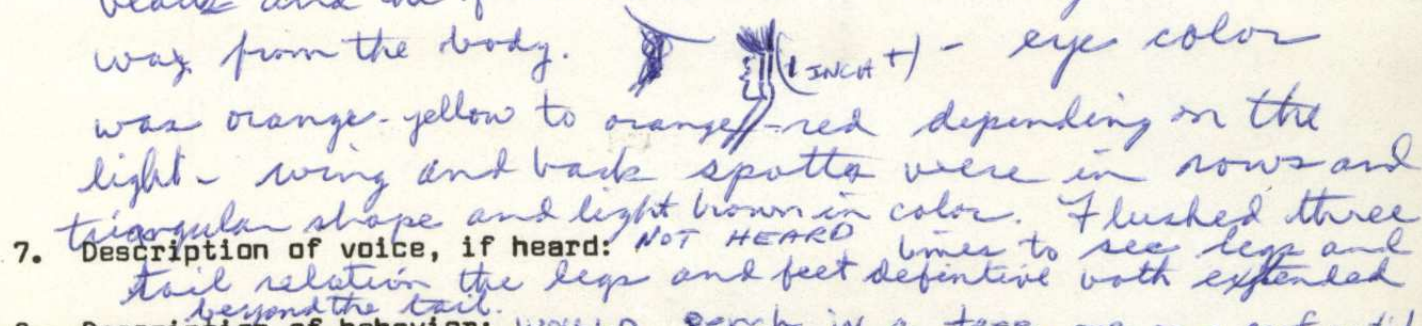 way from the body. (1 INCH +) - eye color
was orange-yellow to orange-red depending on the
light - wing and back spotts were in rows and
triangular shape and light brown in color. Flushed three
7. Description of voice, if heard: NOT HEARD times to see legs and
tail relation the legs and feet defintive both extended
beyond the tail.
Description of behavior: WOULD perch in a tree